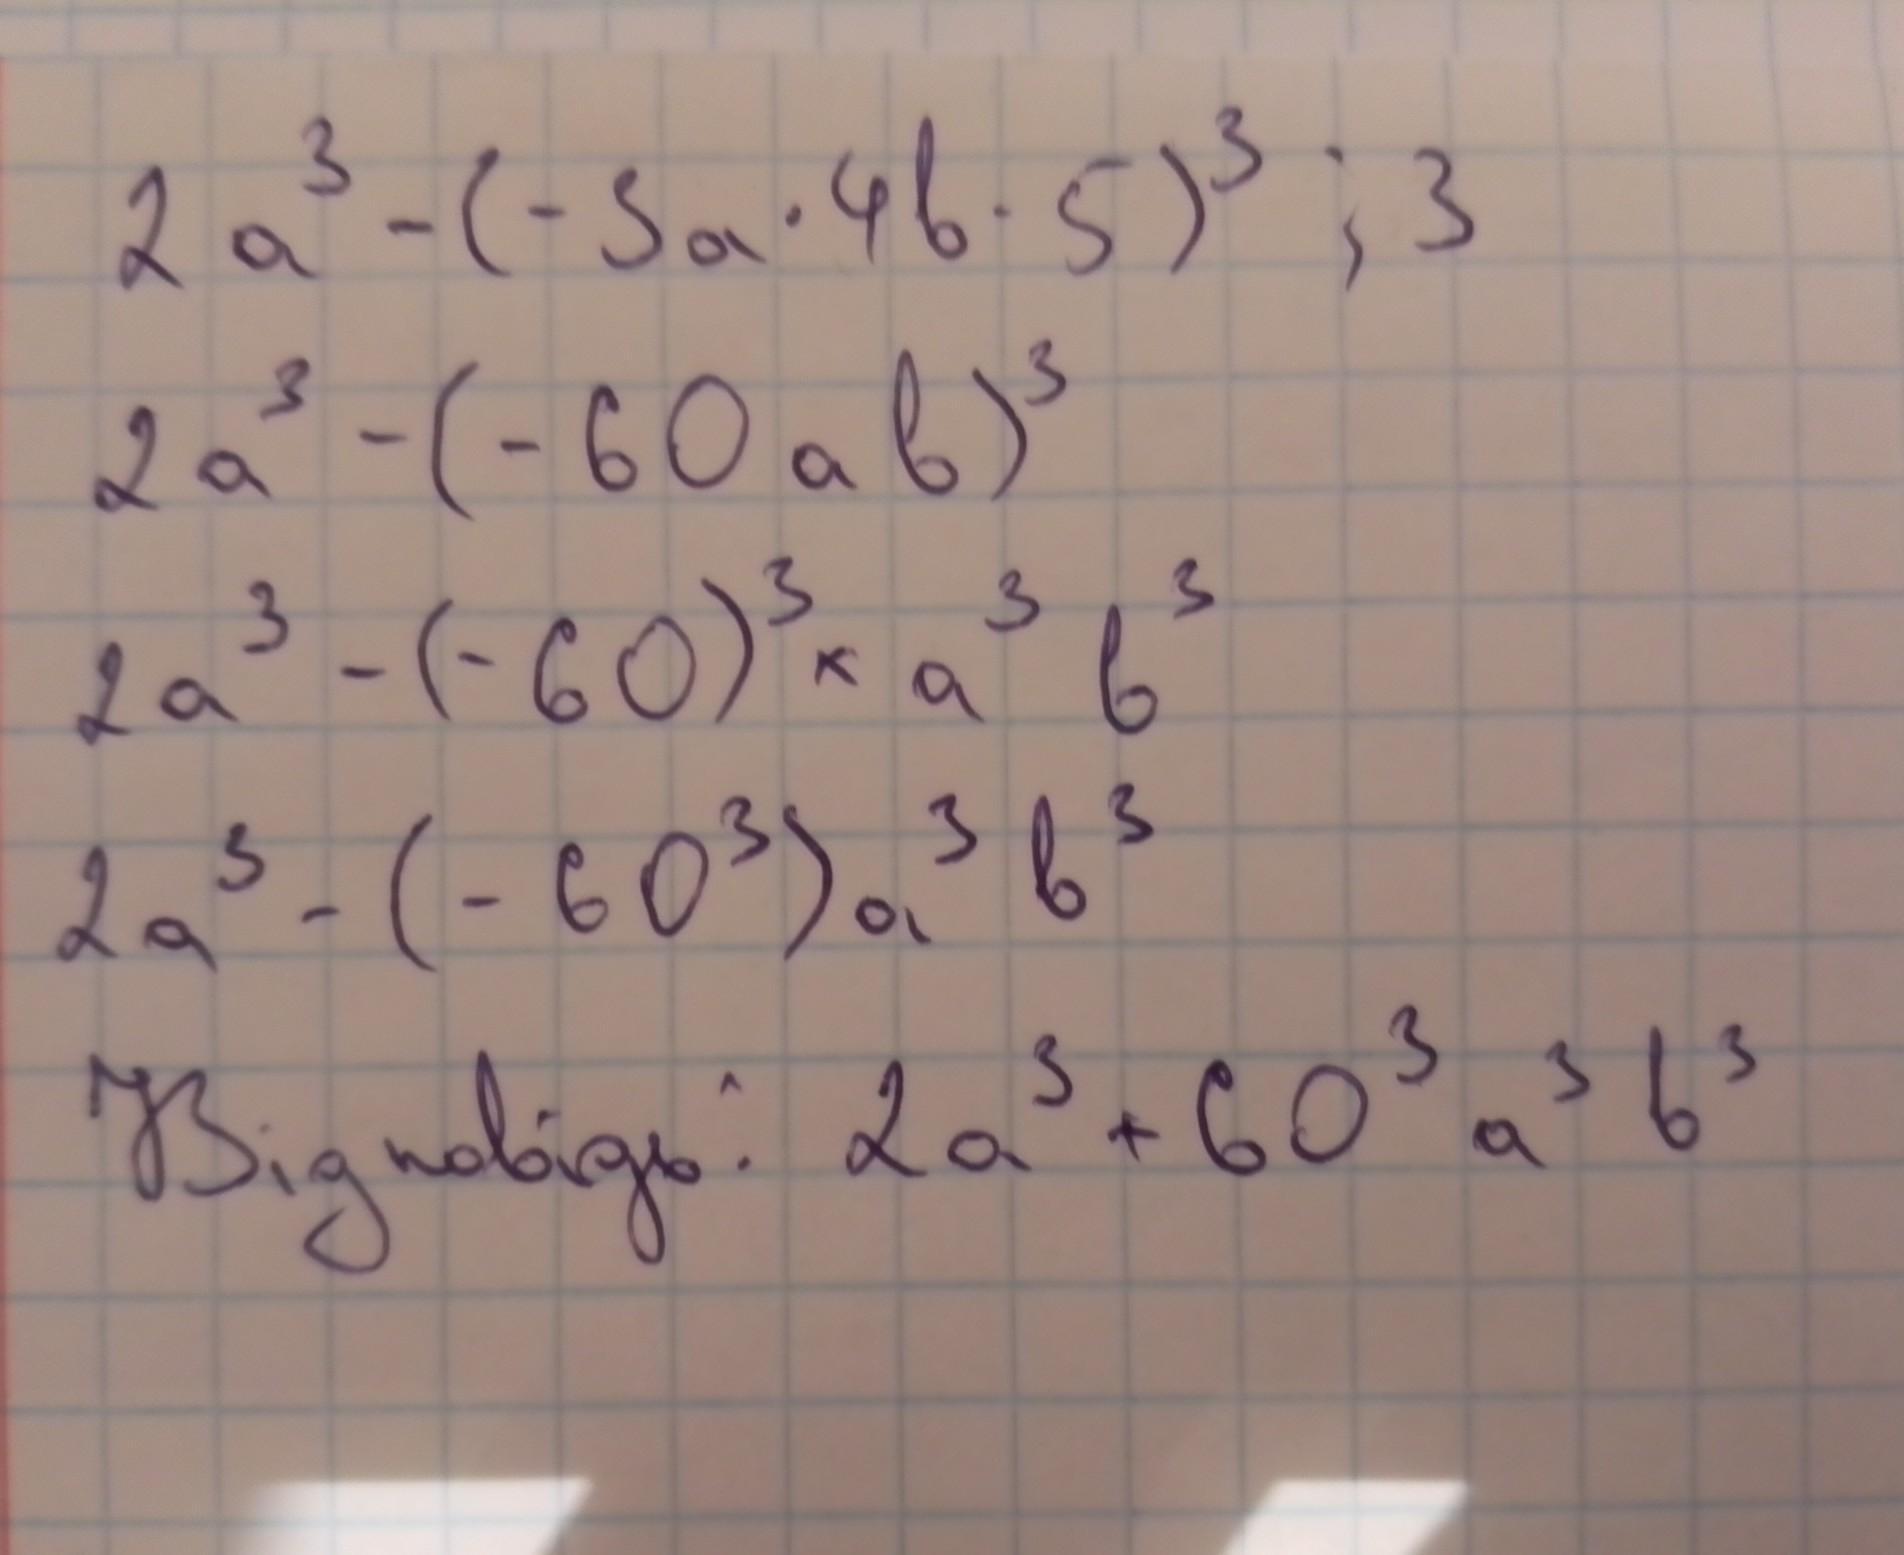 2a³ - (-3a · 4b · 5)³ ; 3
2a³ - (-60ab)³
2a³ - (-60)³ × a³ b³
2a³ - (-60³) a³ b³
2a³ + 60³ a³ b³